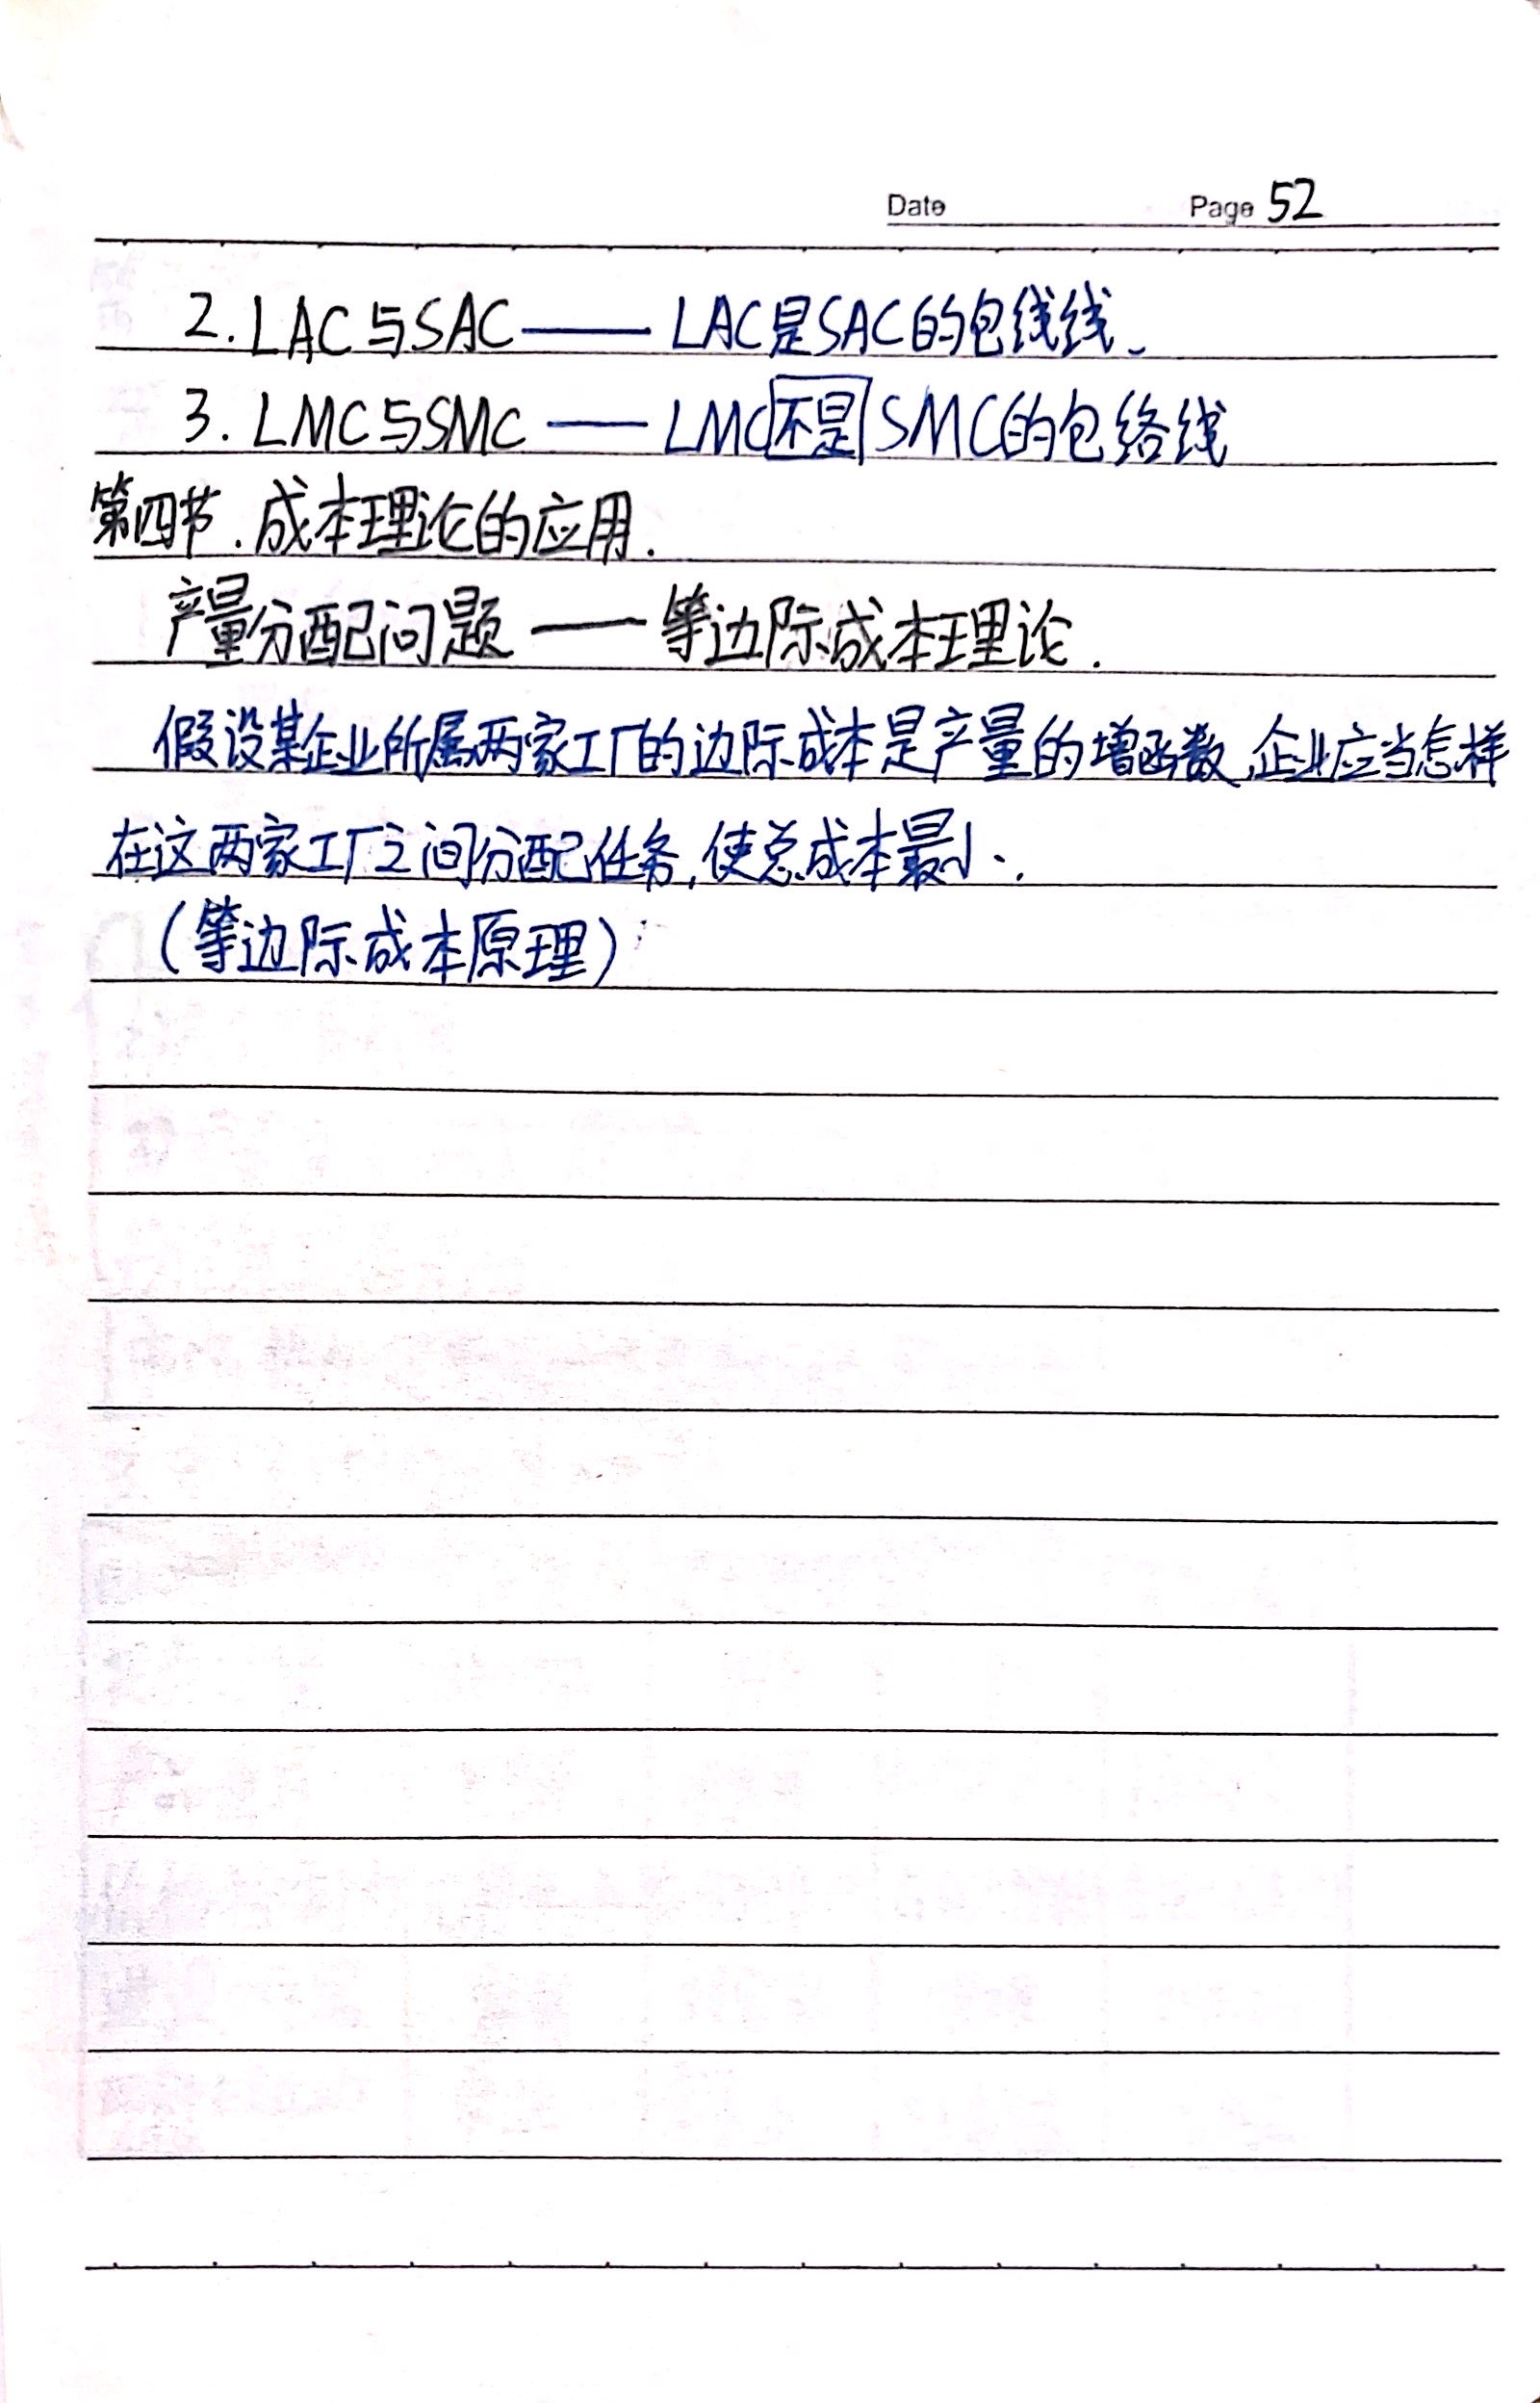 Date Page 52
2. LAC与SAC —— LAC是SAC的包线线.
3. LMC与SMC —— LMC不是SMC的包络线
第四节.成本理论的应用.
产量分配问题 —— 等边际成本理论.
假设某企业所属两家工厂的边际成本是产量的增函数,企业应当怎样
在这两家工厂之间分配任务,使总成本最小.
(等边际成本原理)